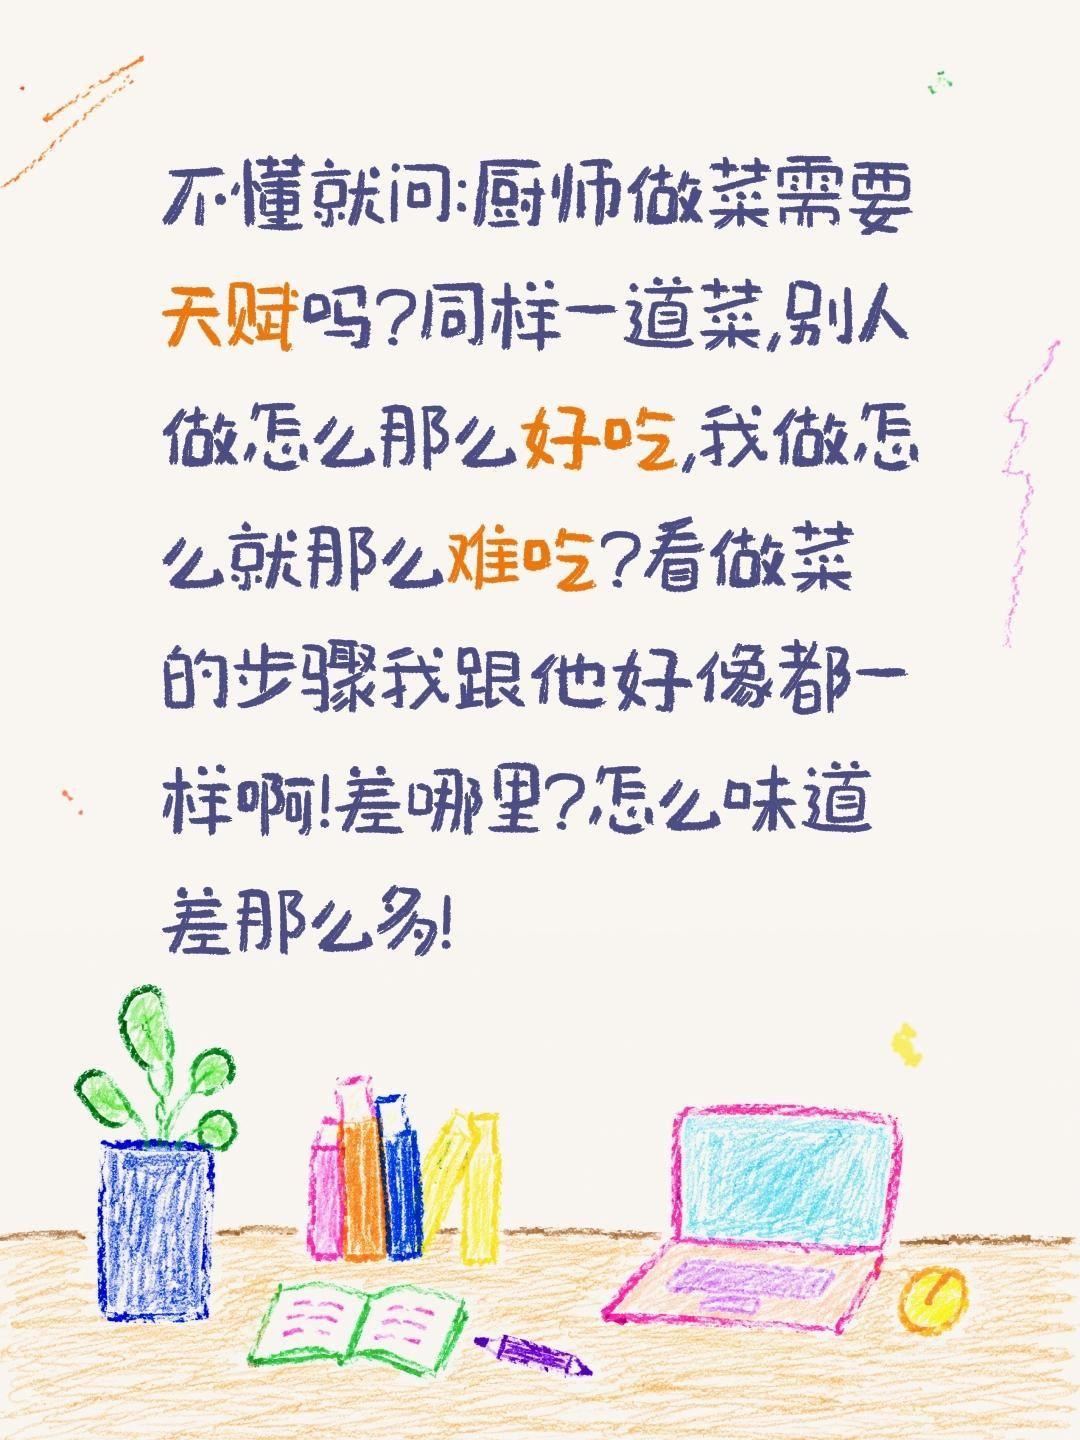 不懂就问:厨师做菜需要
天赋吗?同样一道菜,别人
做怎么那么好吃,我做怎
么就那么难吃?看做菜
的步骤我跟他好像都一
样啊!差哪里?怎么味道
差那么多!